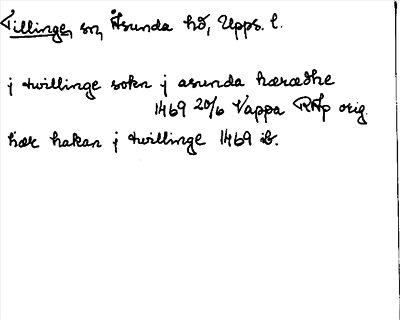 Tillinge, sn, Åsunda hd, Upps. l.
j twillinge sokn j asunda hæradhe
1469 20/6 Vappa RAp orig.
hær hakan j twillinge 1469 ib.